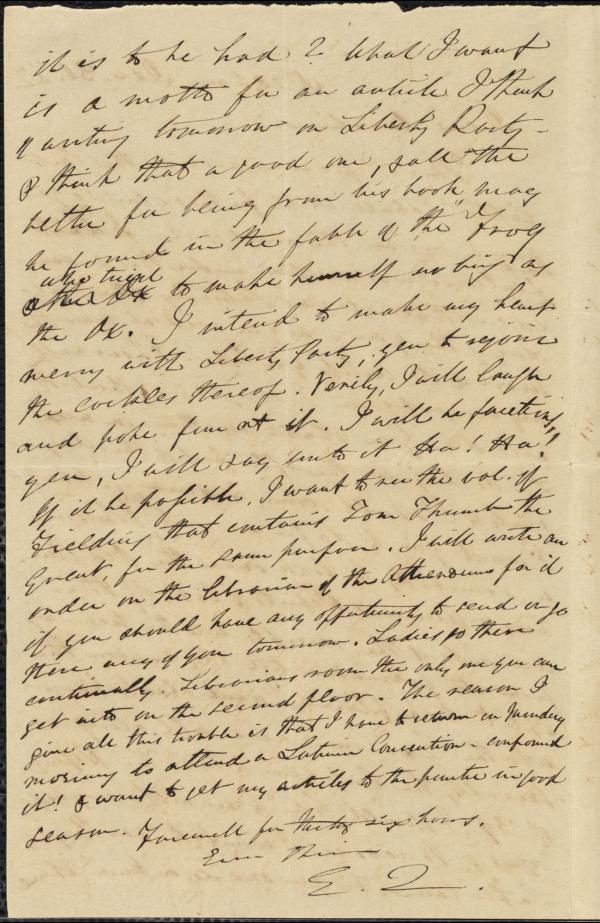 it is to be had? What I want
is a motto for an article I think
writing tomorrow on Liberty Party -
& think that a good one, all the
better for being from his book, may
be found in the fable of the "Frog
who tried
to make himself as big as
the Ox. I intend to make my heart
merry with Liberty Party, yea to rejoice
the cockles thereof. Verily, I will laugh
and poke fun at it. I will be facetious,
yea, I will say unto it Ha! Ha!"
If it be possible, I want to see the vol. of
Fielding that contains Tom Thumb the
Great, for the same purpose. I will write an
order on the librarian of the Athenaeum for it
if you should have any opportunity to send or go
there any of you tomorrow. Ladies go there
continually. Librarians room the only one you can
get into on the second floor. The reason I
give all this trouble is that I have to return on Monday
morning to attend a Convention - confound
it! & want to get my articles to the printer in good
season. Farewell for thirty six hours.
Ever Thine
E. Q.